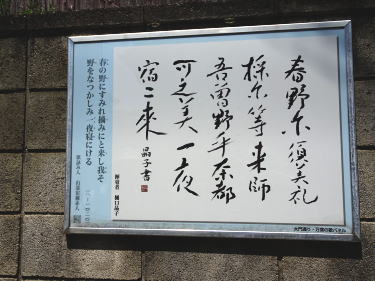 春野尓須美礼
採尓等来師
吾曽野乎奈都
可之美一夜
宿二來
晶子書
揮毫者 樋口晶子
春の野にすみれ摘みにと来し我そ
野をなつかしみ一夜寝にける
山部宿禰赤人
大門通り・万葉の歌パネル